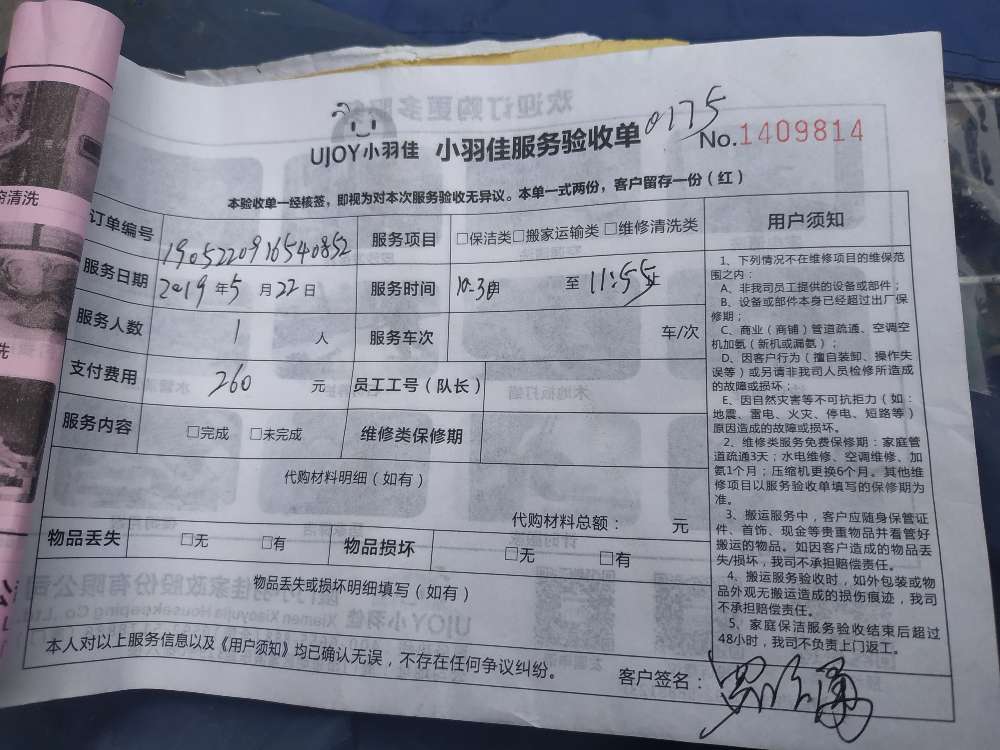 0175
UJOY小羽佳 小羽佳服务验收单
No.1409814
本验收单一经核签，即视为对本次服务验收无异议。本单一式两份，客户留存一份（红）
订单编号 1905220916540852 服务项目 □保洁类□搬家运输类□维修清洗类
服务日期 2019年5月22日 服务时间 10:30 至 11:55
服务人数 1 人 服务车次 车/次
支付费用 260 元 员工工号（队长）
服务内容 □完成 □未完成 维修类保修期
代购材料明细（如有）
代购材料总额： 元
物品丢失 □无 □有 物品损坏 □无 □有
物品丢失或损坏明细填写（如有）
本人对以上服务信息以及《用户须知》均已确认无误，不存在任何争议纠纷。
客户签名：
用户须知
1、下列情况不在维修项目的维保范
围之内：
A、非我司员工提供的设备或部件；
B、设备或部件本身已经超过出厂保
修期；
C、商业（商铺）管道疏通、空调空
机加氨（新机或漏氨）；
D、因客户行为（擅自装卸、操作失
误等）或另请非我司人员检修所造成
的故障或损坏；
E、因自然灾害等不可抗拒力（如：
地震、雷电、火灾、停电、短路等）
原因造成的故障或损坏。
2、维修类服务免费保修期：家庭管
道疏通3天；水电维修、空调维修、加
氨1个月；压缩机更换6个月。其他维
修项目以服务验收单填写的保修期为
准。
3、搬运服务中，客户应随身保管证
件、首饰、现金等贵重物品并看管好
搬运的物品。如因客户造成的物品丢
失/损坏，我司不承担赔偿责任。
4、搬运服务验收时，如外包装或物
品外观无搬运造成的损伤痕迹，我司
不承担赔偿责任。
5、家庭保洁服务验收结束后超过
48小时，我司不负责上门返工。
清洗
洗